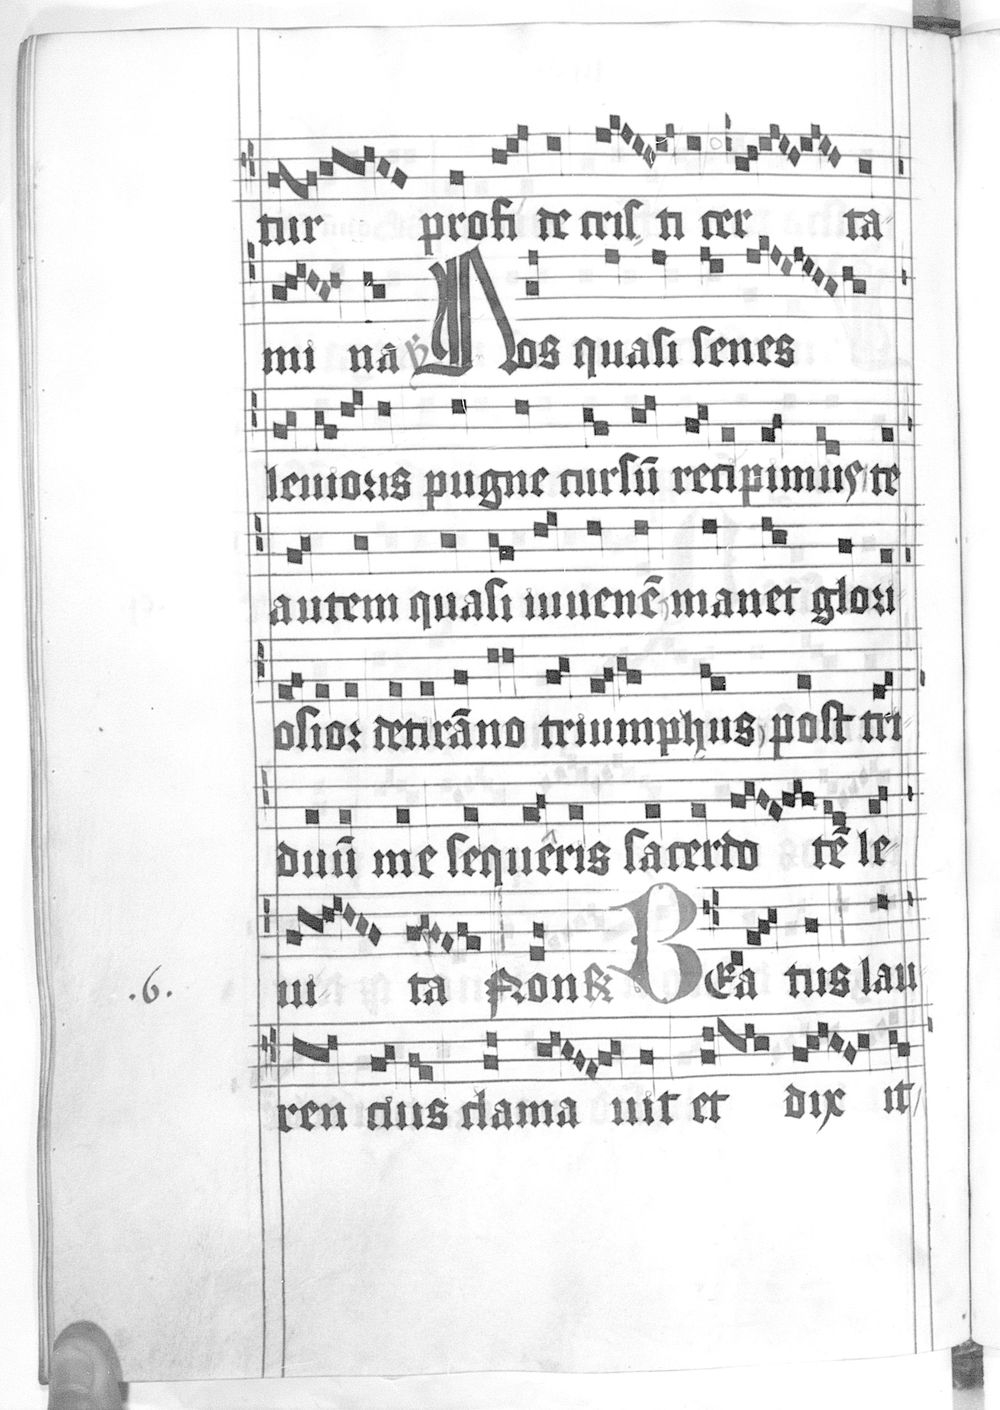 tur profi de cris ti cer ta
mi na ℣ Nos quasi senes
leuioris pugne cursū recipimus te
autem quasi iuuenē manet glori
osior detirāno triumphus post tri
duū me sequeris sacerdo tē le
ui ta Non ℟ BEa tus lau
.6.
ren cius clama uit et dix it